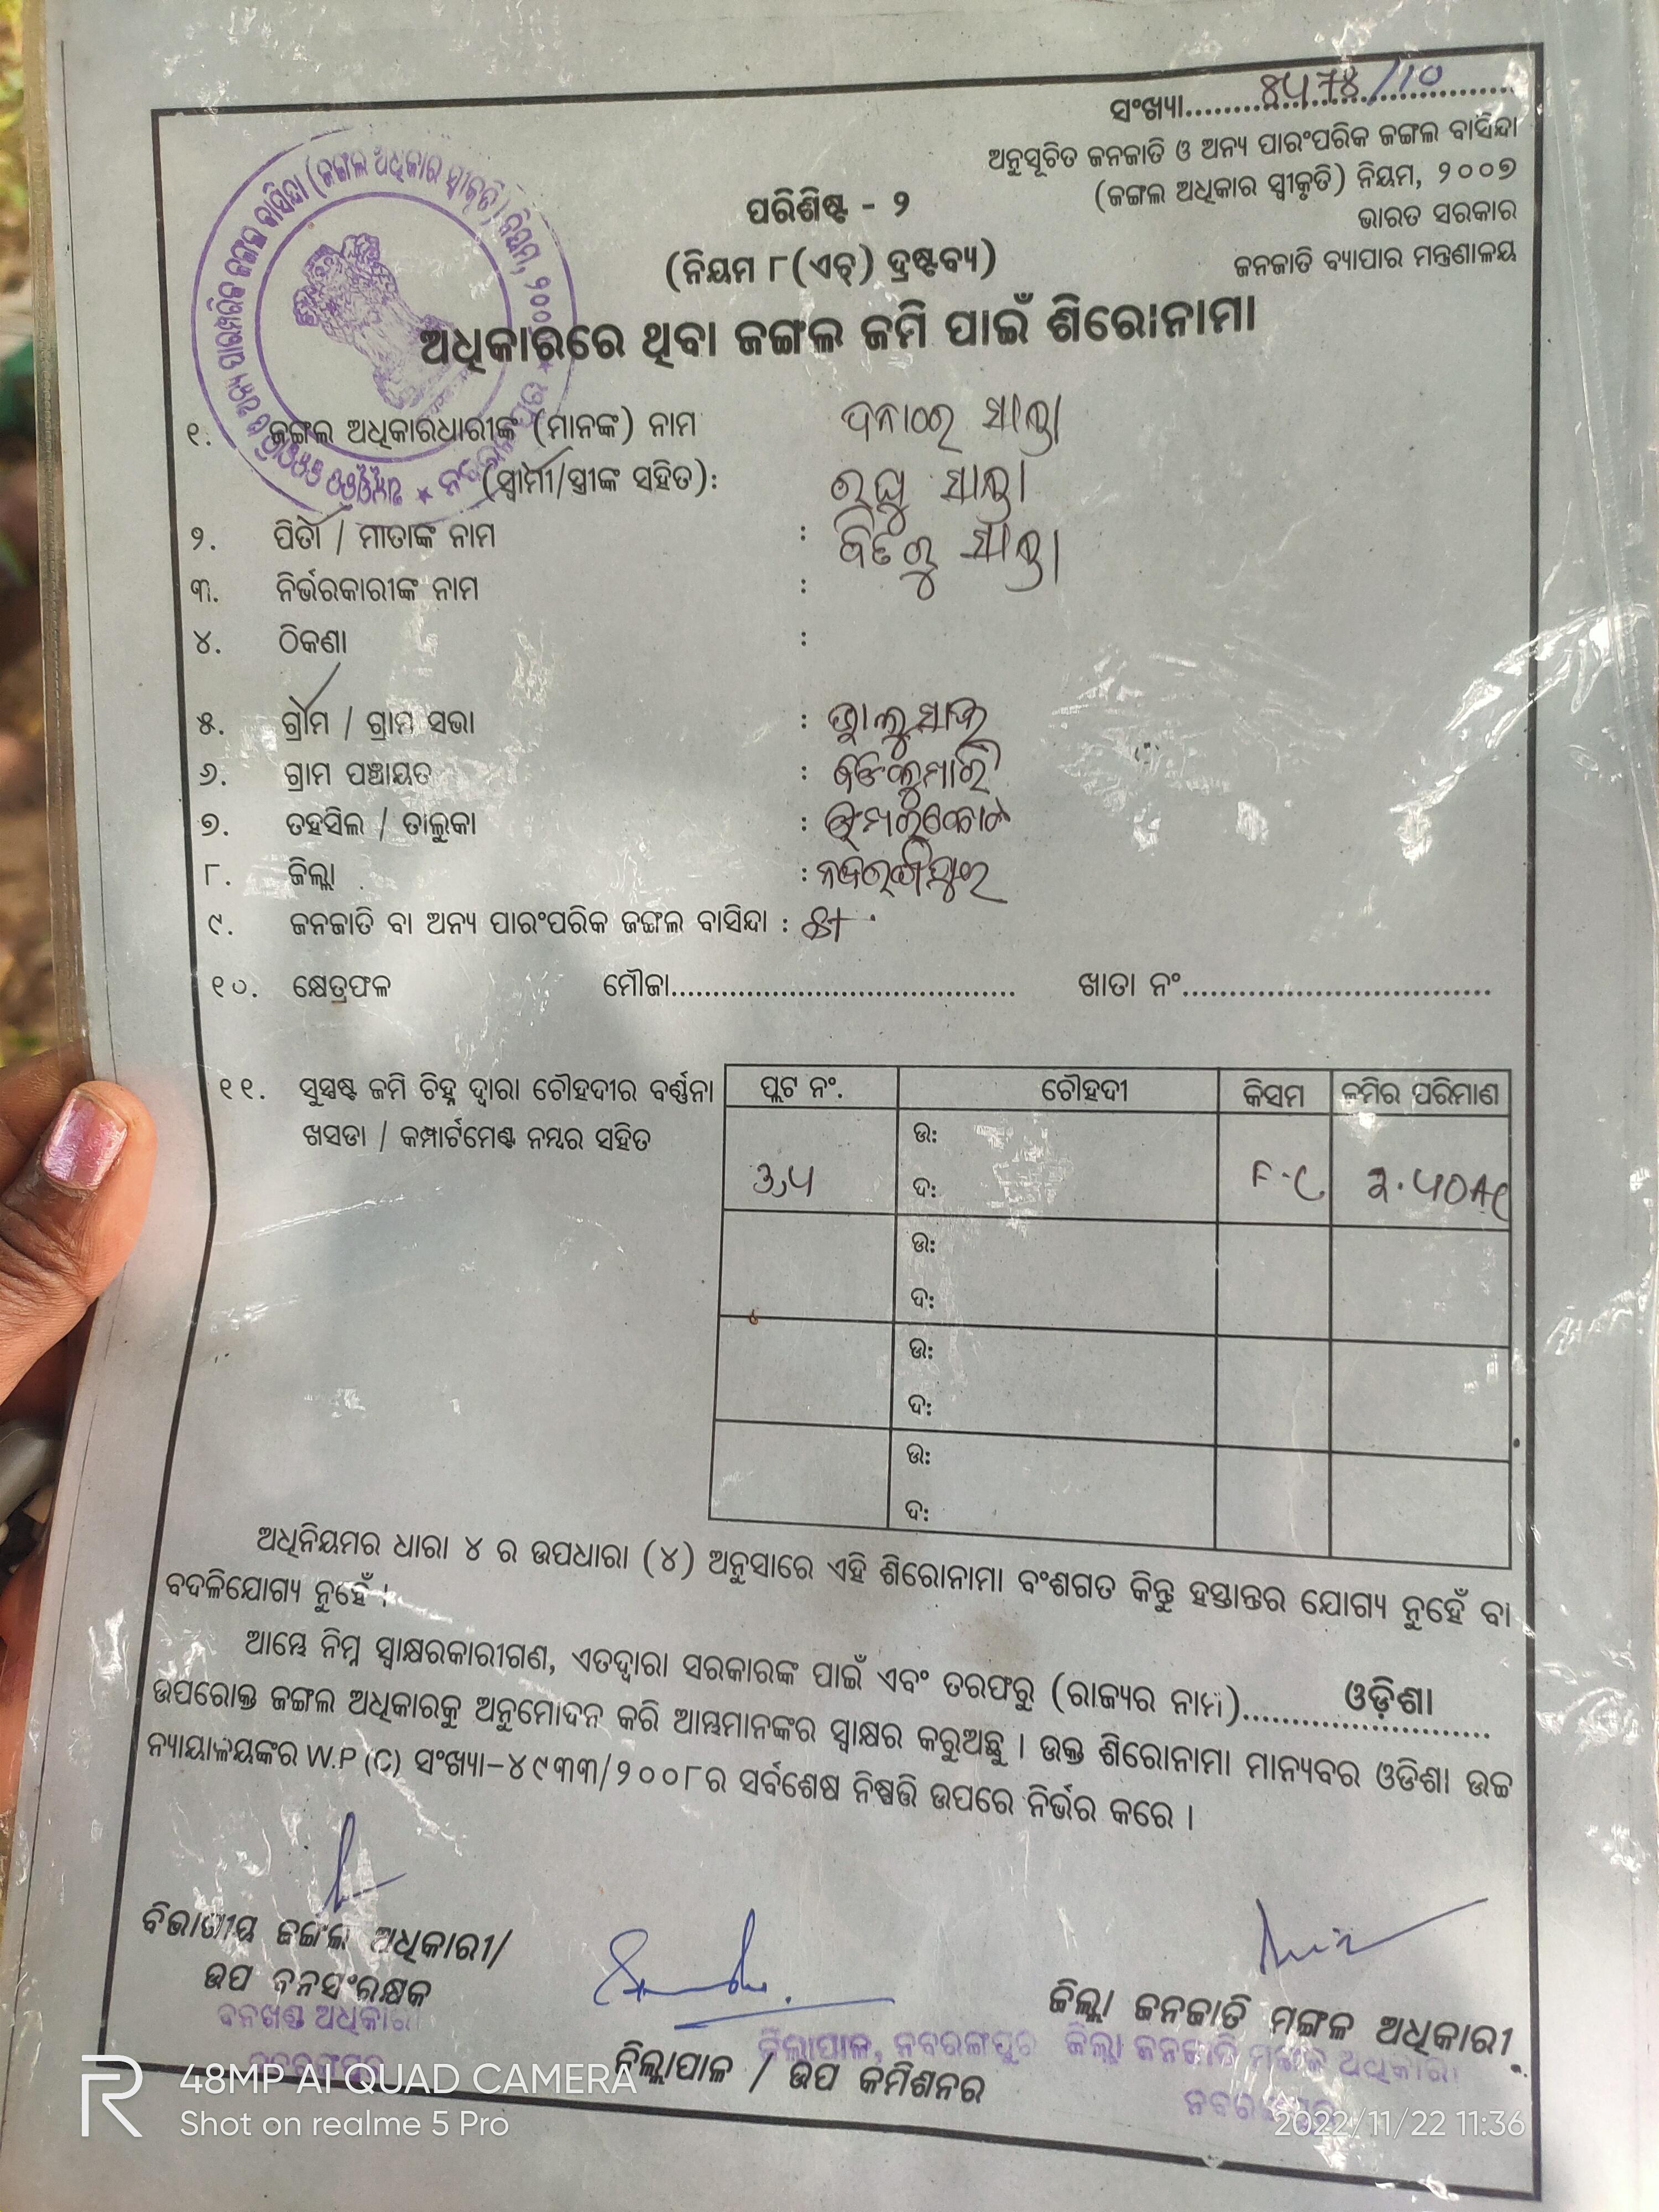 ସଂଖ୍ୟା................................
ଅନୁସୂଚିତ ଜନଜାତି ଓ ଅନ୍ୟ ପାରଂପରିକ ଜଙ୍ଗଲ ବାସିନ୍ଦା
(ଜଙ୍ଗଲ ଅଧିକାର ସ୍ୱୀକୃତି) ନିୟମ, ୨୦୦୭
ଭାରତ ସରକାର
ଜନଜାତି ବ୍ୟାପାର ମନ୍ତ୍ରଣାଳୟ
ପରିଶିଷ୍ଟ - ୨
(ନିୟମ ୮(ଏଚ୍) ଦ୍ରଷ୍ଟବ୍ୟ)
ଅଧିକାରରେ ଥିବା ଜଙ୍ଗଲ ଜମି ପାଇଁ ଶିରୋନାମା
୧. ଜଙ୍ଗଲ ଅଧିକାରଧାରୀଙ୍କ (ମାନଙ୍କ) ନାମ
(ସ୍ୱାମୀ/ସ୍ତ୍ରୀଙ୍କ ସହିତ):
୨. ପିତା / ମାତାଙ୍କ ନାମ :
୩. ନିର୍ଭରକାରୀଙ୍କ ନାମ :
୪. ଠିକଣା :
୫. ଗ୍ରାମ / ଗ୍ରାମ ସଭା :
୬. ଗ୍ରାମ ପଞ୍ଚାୟତ :
୭. ତହସିଲ / ତାଲୁକା :
୮. ଜିଲ୍ଲା : ନବରଙ୍ଗପୁର
୯. ଜନଜାତି ବା ଅନ୍ୟ ପାରଂପରିକ ଜଙ୍ଗଲ ବାସିନ୍ଦା : ST
୧୦. କ୍ଷେତ୍ରଫଳ ମୌଜା.......................................... ଖାତା ନଂ.................................
୧୧. ସୁସ୍ପଷ୍ଟ ଜମି ଚିହ୍ନ ଦ୍ୱାରା ଚୌହଦୀର ବର୍ଣ୍ଣନା
ଖସଡା / କମ୍ପାର୍ଟମେଣ୍ଟ ନମ୍ବର ସହିତ
ପ୍ଲଟ ନଂ. ଚୌହଦୀ କିସମ ଜମିର ପରିମାଣ
ଉ:
ଦ: F.C
ଉ:
ଦ:
ଉ:
ଦ:
ଉ:
ଦ:
ଅଧିନିୟମର ଧାରା ୪ ର ଉପଧାରା (୪) ଅନୁସାରେ ଏହି ଶିରୋନାମା ବଂଶଗତ କିନ୍ତୁ ହସ୍ତାନ୍ତର ଯୋଗ୍ୟ ନୁହେଁ ବା
ବଦଳିଯୋଗ୍ୟ ନୁହେଁ ।
ଆମ୍ଭେ ନିମ୍ନ ସ୍ୱାକ୍ଷରକାରୀଗଣ, ଏତଦ୍ୱାରା ସରକାରଙ୍କ ପାଇଁ ଏବଂ ତରଫରୁ (ରାଜ୍ୟର ନାମ).........ଓଡ଼ିଶା.........
ଉପରୋକ୍ତ ଜଙ୍ଗଲ ଅଧିକାରକୁ ଅନୁମୋଦନ କରି ଆମ୍ଭମାନଙ୍କର ସ୍ୱାକ୍ଷର କରୁଅଛୁ । ଉକ୍ତ ଶିରୋନାମା ମାନ୍ୟବର ଓଡିଶା ଉଚ୍ଚ
ନ୍ୟାୟାଳୟଙ୍କର W.P (C) ସଂଖ୍ୟା–୪୯୩୩/୨୦୦୮ର ସର୍ବଶେଷ ନିଷ୍ପତ୍ତି ଉପରେ ନିର୍ଭର କରେ ।
ବିଭାଗୀୟ ଜଙ୍ଗଲ ଅଧିକାରୀ/
ଉପ ବନସଂରକ୍ଷକ
ବନଖଣ୍ଡ ଅଧିକାରୀ
ଜିଲ୍ଲାପାଳ, ନବରଙ୍ଗପୁର
ଜିଲ୍ଲାପାଳ / ଉପ କମିଶନର
ଜିଲ୍ଲା ଜନଜାତି ମଙ୍ଗଳ ଅଧିକାରୀ
ଜିଲ୍ଲା ଜନଜାତି ମଙ୍ଗଳ ଅଧିକାରୀ
48MP AI QUAD CAMERA
Shot on realme 5 Pro
2022/11/22 11:36